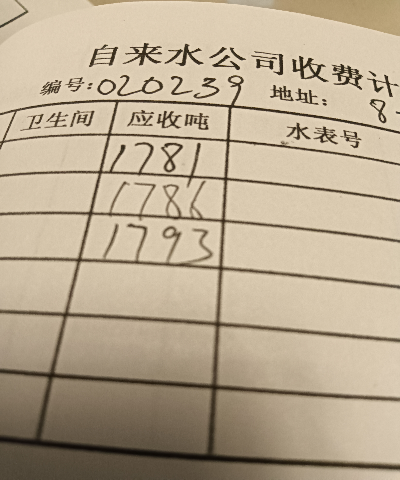 自来水公司收费计
编号:020239 地址: 8-
卫生间 应收吨 水表号
1781
1786
1793